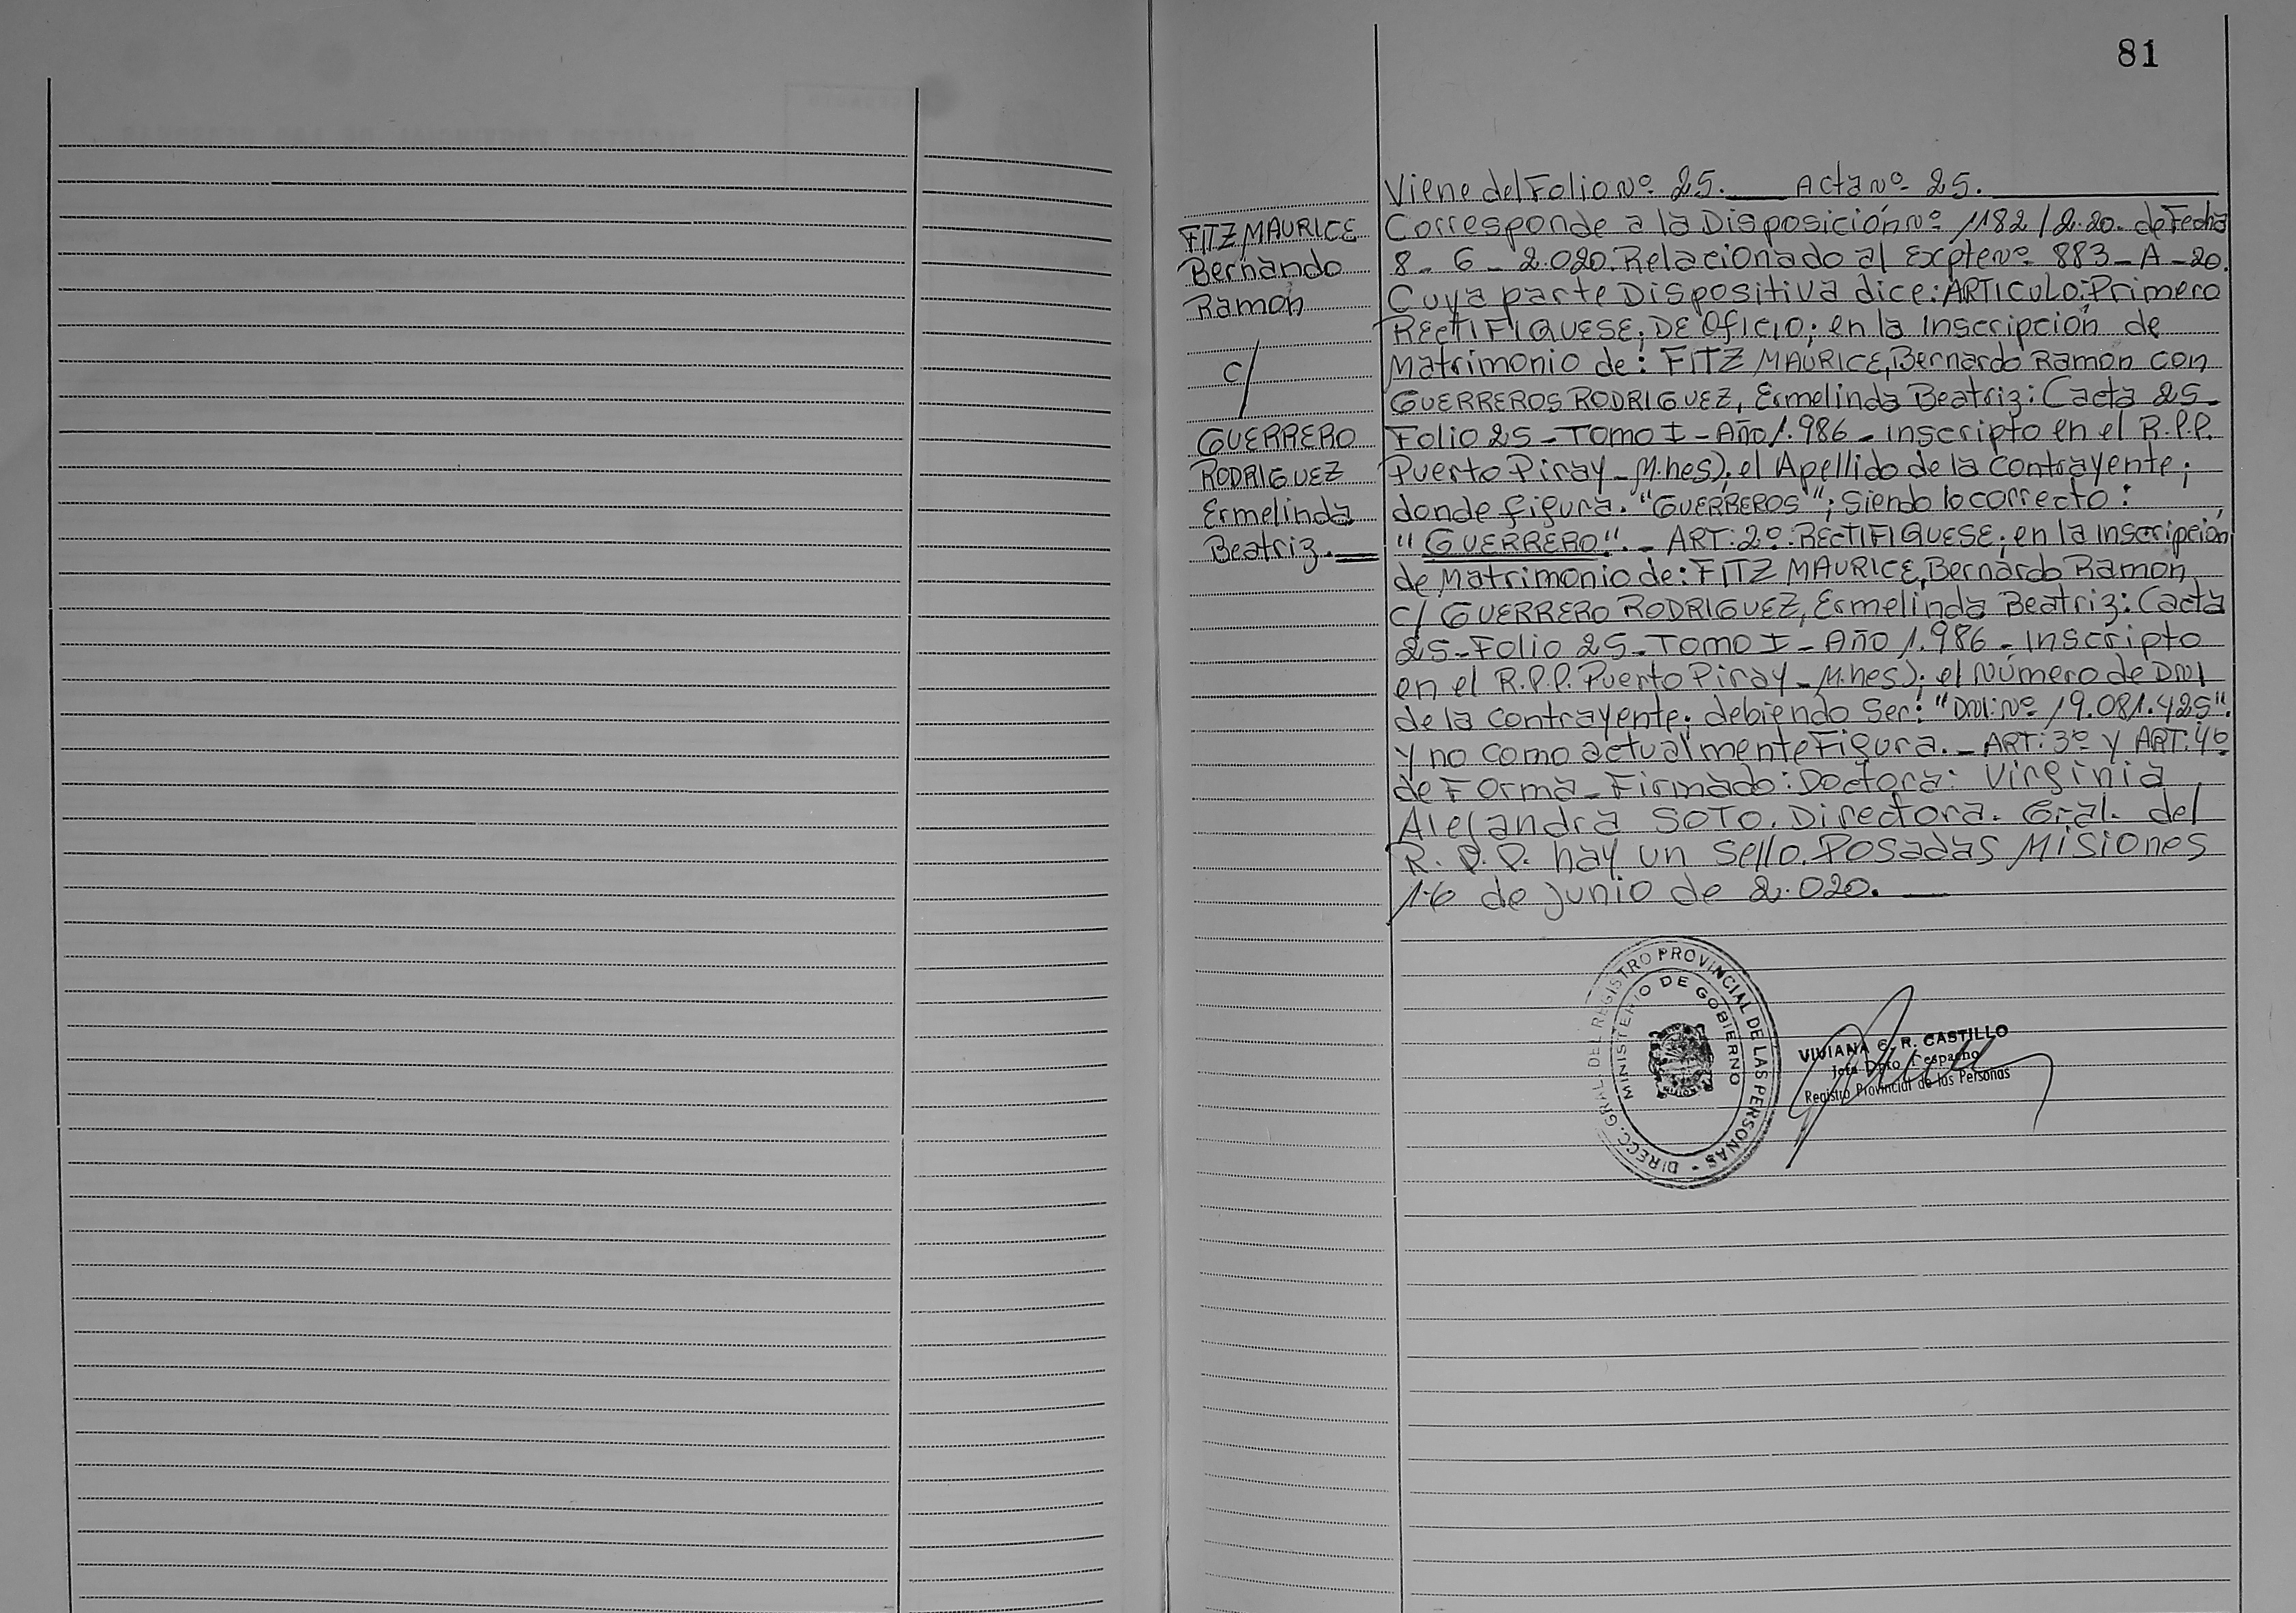 81
FITZ MAURICE
Bernando
Ramón
c/
GUERRERO
RODRIGUEZ
Ermelinda
Beatriz.
Viene del Folio Nº 25. Acta Nº 25.
Corresponde a la Disposición Nº 1182/2.20. de Fecha
8-6-2.020. Relacionado al Expte Nº 883-A-20.
Cuya parte Dispositiva dice: ARTICULO: Primero
RECTIFIQUESE; DE OFICIO; en la Inscripción de
Matrimonio de: FITZ MAURICE, Bernardo Ramon con
GUERREROS RODRIGUEZ, Ermelinda Beatriz: (acta 25-
Folio 25-Tomo I-Año 1.986-Inscripto en el R.P.P.
Puerto Piray-M.nes); el Apellido de la contrayente;
donde figura. "GUERREROS"; Siendo lo correcto:
"GUERRERO".- ART: 2º: RECTIFIQUESE; en la Inscripción
de Matrimonio de: FITZ MAURICE, Bernardo Ramon
c/ GUERRERO RODRIGUEZ, Ermelinda Beatriz: (acta
25-Folio 25-Tomo I-Año 1.986-Inscripto
en el R.P.P. Puerto Piray-M.nes); el Número de DNI
de la contrayente; debiendo Ser: "DNI: Nº 19.081.425".
y no como actualmente Figura.- ART: 3º y ART: 4º
de Forma-Firmado: Doctora: Virginia
Alejandra SOTO. Directora. Gral. del
R.P.P. hay un Sello. Posadas Misiones
16 de junio de 2.020.
DIREC. GRAL. DEL REGISTRO PROVINCIAL DE LAS PERSONAS -
MINISTERIO DE GOBIERNO
VIVIANA G. R. CASTILLO
Jefa Dpto Despacho
Registro Provincial de las Personas